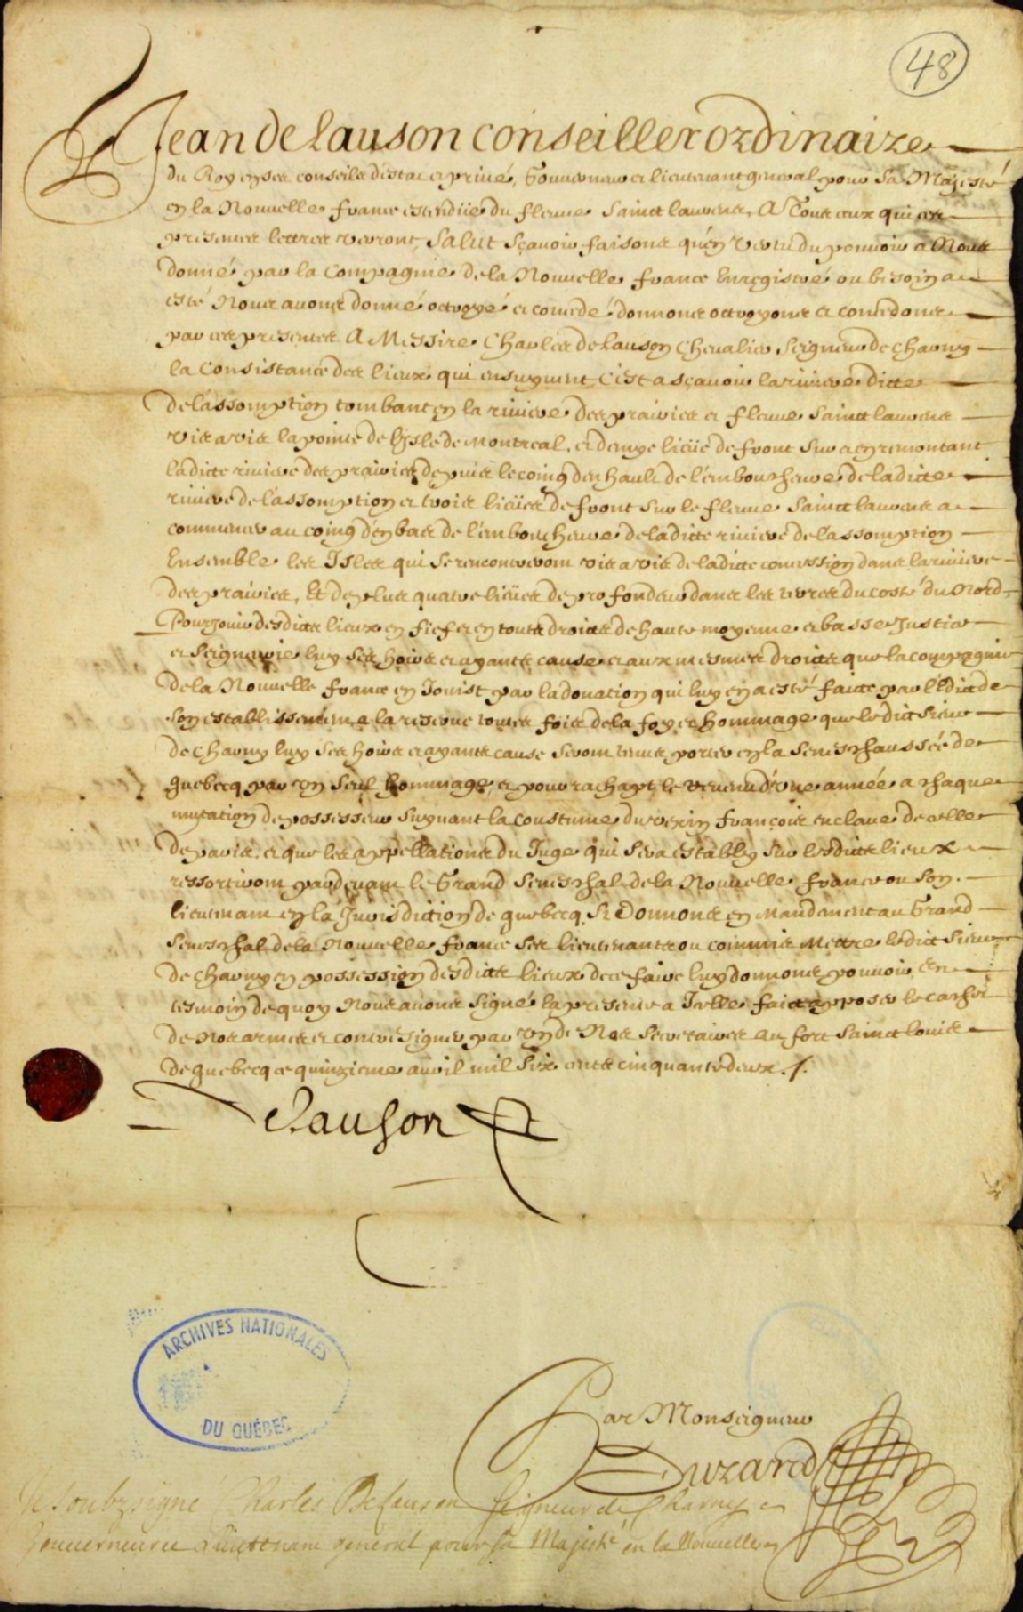 48
Jean de lauson conseiller ordinaire
du Roy en ses conseils destat et privé, Gouverneur et lieutenant general pour sa Majesté
en la Nouvelle france estendüe du fleuve sainct laurens, A Tous ceux qui ces
presentes lettres verront, Salut sçavoir faisons qu'en vertu du pouvoir a Nous
donné par la Compagnie de la Nouvelle france Enregistré ou besoin a
esté Nous avons donné octroyé et concedé donnons octroyons et concedons
par ces presentes A Messire Charles de lauson Chevalier Seigneur de Charny
la Consistance des lieux qui ensuyvent C'est a sçavoir la riviere ditte
de l'assomption tombant en la riviere des prairies et fleuve sainct laurens
vis a vis la pointe de l'Isle de Montreal, et demye lieüe de front sur et en remontant
ladicte riviere des prairies depuis le coing d'en hault de l'embouscheure de ladicte
riviere de l'assomption et trois lieües de front sur le fleuve sainct laurens a
commencer au coing d'en bas de l'embouscheure de ladicte riviere de l'assomption
Ensemble les Isles qui se rencontreront vis a vis de ladicte concession dans la riviere
des prairies, Et de plus quatre lieües de profondeur dans les terres du costé du Nord
Pour jouir desdicts lieux en fief et en touts droicts de haute moyenne et basse Justice
et Seigneurie luy ses hoirs et ayants cause et aux mesmes droicts que la compagnie
de la Nouvelle france en Jouist par la donation qui luy en a esté faicte par l'Edict de
son establissement a la reserve toutes fois de la foy et hommage que ledict sieur
de Charny luy ses hoirs et ayants cause seront tenus porter en la seneschaussée de
quebecq par un seul hommage, et pour rachapt le revenu d'une année a chaque
mutation de possesseur suyvant la coustume du vexin françois enclave de celle
de paris, et que les appellations du Juge qui sera estably sur lesdicts lieux
ressortiront pardevant le Grand Seneschal de la Nouvelle france ou son
lieutenant en la Jurisdiction de quebecq, Si Donnons en Mandement au Grand
Seneschal de la Nouvelle france ses lieutenants ou commis Mettre ledict sieur
de Charny en possession desdicts lieux de ce faire luy donnons pouvoir En
tesmoin de quoy Nous avons signé la presente a Icelle faict apposer le cachet
de Nos armes et contresigner par un de Nos secretaires au fort sainct louis
de quebecq ce quinzieme avril mil six cents cinquante deux ./.
Delauson
ARCHIVES NATIONALES
DU QUÉBEC
Par Monseigneur
Durand
Je soubzsigné Charles De lauson seigneur de Charny
Gouverneur et Lieutenant general pour sa Majesté en la Nouvelle